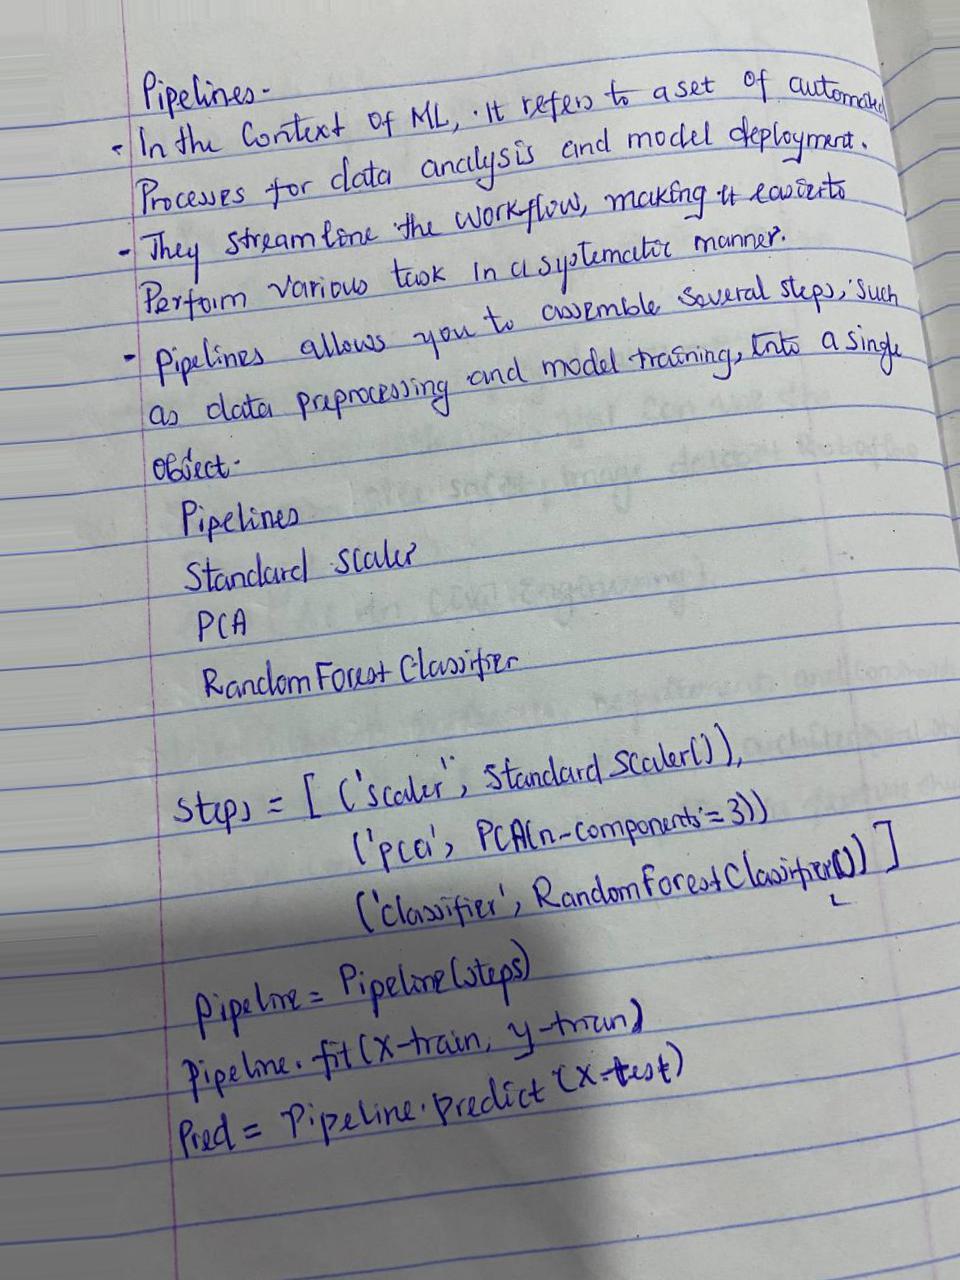 Pipelines-
- In the Context of ML, it refers to a set of automated
Processes for data analysis and model deployment.
- They streamline the workflow, making it easier to
Perform various task in a systematic manner.
- Pipelines allows you to assemble several steps, such
as data preprocessing and model training, into a single
object.
Pipelines
Standard Scaler
PCA
RandomForest Classifier
Steps = [ ('scaler", Standard Scaler()),
('pca', PCA(n-components = 3))
('classifier', RandomForestClassifier()) ]
Pipeline = Pipeline(steps)
Pipeline.fit(X-train, y-train)
Pred = Pipeline.predict (X-test)